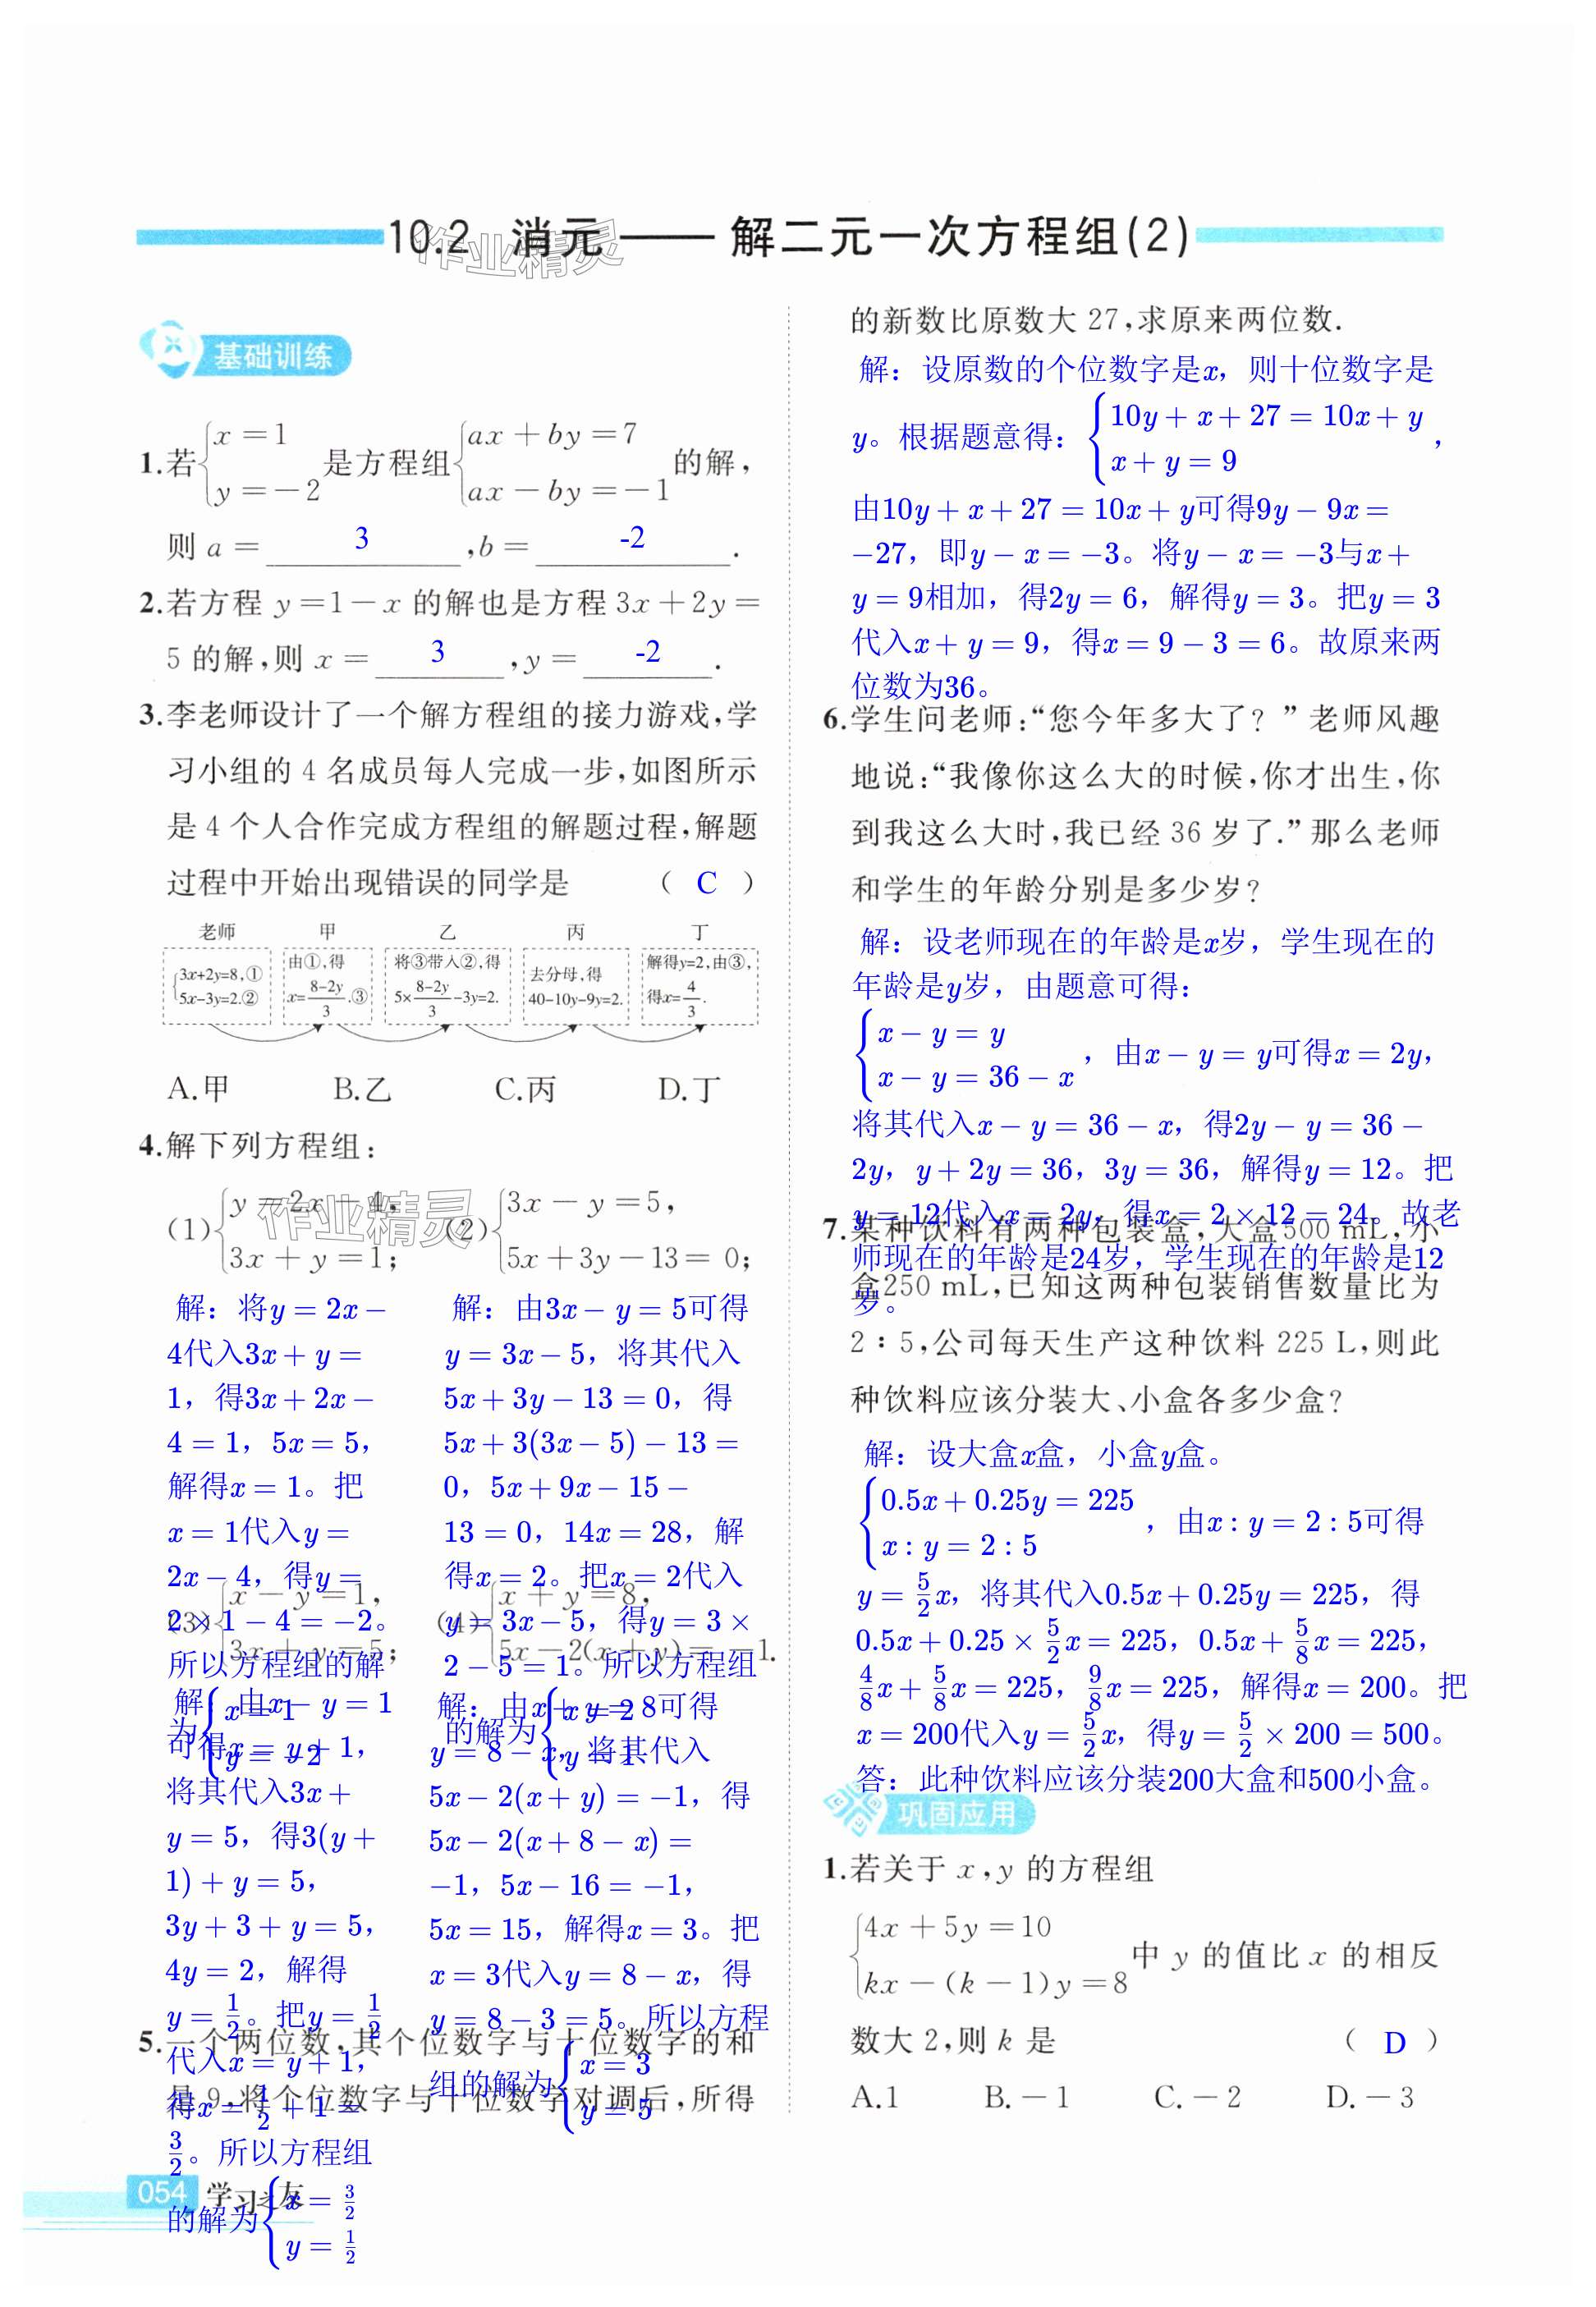 10.2 消元——解二元一次方程组(2)
作业精灵
基础训练
1.若{x=1
y=-2 是方程组{ax+by=7
ax-by=-1 的解,
则 a= 3 ,b= -2 .
2.若方程 y=1-x 的解也是方程 3x+2y=
5 的解,则 x= 3 ,y= -2 .
3.李老师设计了一个解方程组的接力游戏,学
习小组的 4 名成员每人完成一步,如图所示
是 4 个人合作完成方程组的解题过程,解题
过程中开始出现错误的同学是 ( C )
老师 甲 乙 丙 丁
{3x+2y=8,①
5x-3y=2.②
由①,得
x=(8-2y)/3.③
将③带入②,得
5×(8-2y)/3-3y=2.
去分母,得
40-10y-9y=2.
解得y=2,由③,
得x=4/3.
A.甲 B.乙 C.丙 D.丁
4.解下列方程组:
(1){y=2x-4,
3x+y=1;
作业精灵
(2){3x-y=5,
5x+3y-13=0;
解：将y=2x-
4代入3x+y=
1，得3x+2x-
4=1，5x=5，
解得x=1。把
x=1代入y=
2x-4，得y=
2×1-4=-2。
所以方程组的解
为{x=1
y=-2
解：由3x-y=5可得
y=3x-5，将其代入
5x+3y-13=0，得
5x+3(3x-5)-13=
0，5x+9x-15-
13=0，14x=28，解
得x=2。把x=2代入
y=3x-5，得y=3×
2-5=1。所以方程组
的解为{x=2
y=1
(3){x-y=1,
3x+y=5;
(4){x+y=8,
5x-2(x+y)=-1.
解：由x-y=1
可得x=y+1，
将其代入3x+
y=5，得3(y+
1)+y=5，
3y+3+y=5，
4y=2，解得
y=1/2。把y=1/2
代入x=y+1，
得x=1/2+1=
3/2。所以方程组
的解为{x=3/2
y=1/2
解：由x+y=8可得
y=8-x，将其代入
5x-2(x+y)=-1，得
5x-2(x+8-x)=
-1，5x-16=-1，
5x=15，解得x=3。把
x=3代入y=8-x，得
y=8-3=5。所以方程
组的解为{x=3
y=5
5.一个两位数,其个位数字与十位数字的和
是 9,将个位数字与十位数字对调后,所得
054 学习之友
的新数比原数大 27,求原来两位数.
解：设原数的个位数字是x，则十位数字是
y。根据题意得：{10y+x+27=10x+y
x+y=9 ，
由10y+x+27=10x+y可得9y-9x=
-27，即y-x=-3。将y-x=-3与x+
y=9相加，得2y=6，解得y=3。把y=3
代入x+y=9，得x=9-3=6。故原来两
位数为36。
6.学生问老师:“您今年多大了？”老师风趣
地说:“我像你这么大的时候,你才出生,你
到我这么大时,我已经 36 岁了.”那么老师
和学生的年龄分别是多少岁?
解：设老师现在的年龄是x岁，学生现在的
年龄是y岁，由题意可得：
{x-y=y
x-y=36-x ，由x-y=y可得x=2y，
将其代入x-y=36-x，得2y-y=36-
2y，y+2y=36，3y=36，解得y=12。把
y=12代入x=2y，得x=2×12=24。故老
师现在的年龄是24岁，学生现在的年龄是12
岁。
7.某种饮料有两种包装盒,大盒500 mL,小
盒250 mL,已知这两种包装销售数量比为
2∶5,公司每天生产这种饮料 225 L,则此
种饮料应该分装大、小盒各多少盒?
解：设大盒x盒，小盒y盒。
{0.5x+0.25y=225
x:y=2:5 ，由x:y=2:5可得
y=5/2x，将其代入0.5x+0.25y=225，得
0.5x+0.25×5/2x=225，0.5x+5/8x=225，
4/8x+5/8x=225，9/8x=225，解得x=200。把
x=200代入y=5/2x，得y=5/2×200=500。
答：此种饮料应该分装200大盒和500小盒。
巩固应用
1.若关于 x,y 的方程组
{4x+5y=10
kx-(k-1)y=8 中 y 的值比 x 的相反
数大 2,则 k 是 ( D )
A.1 B.-1 C.-2 D.-3